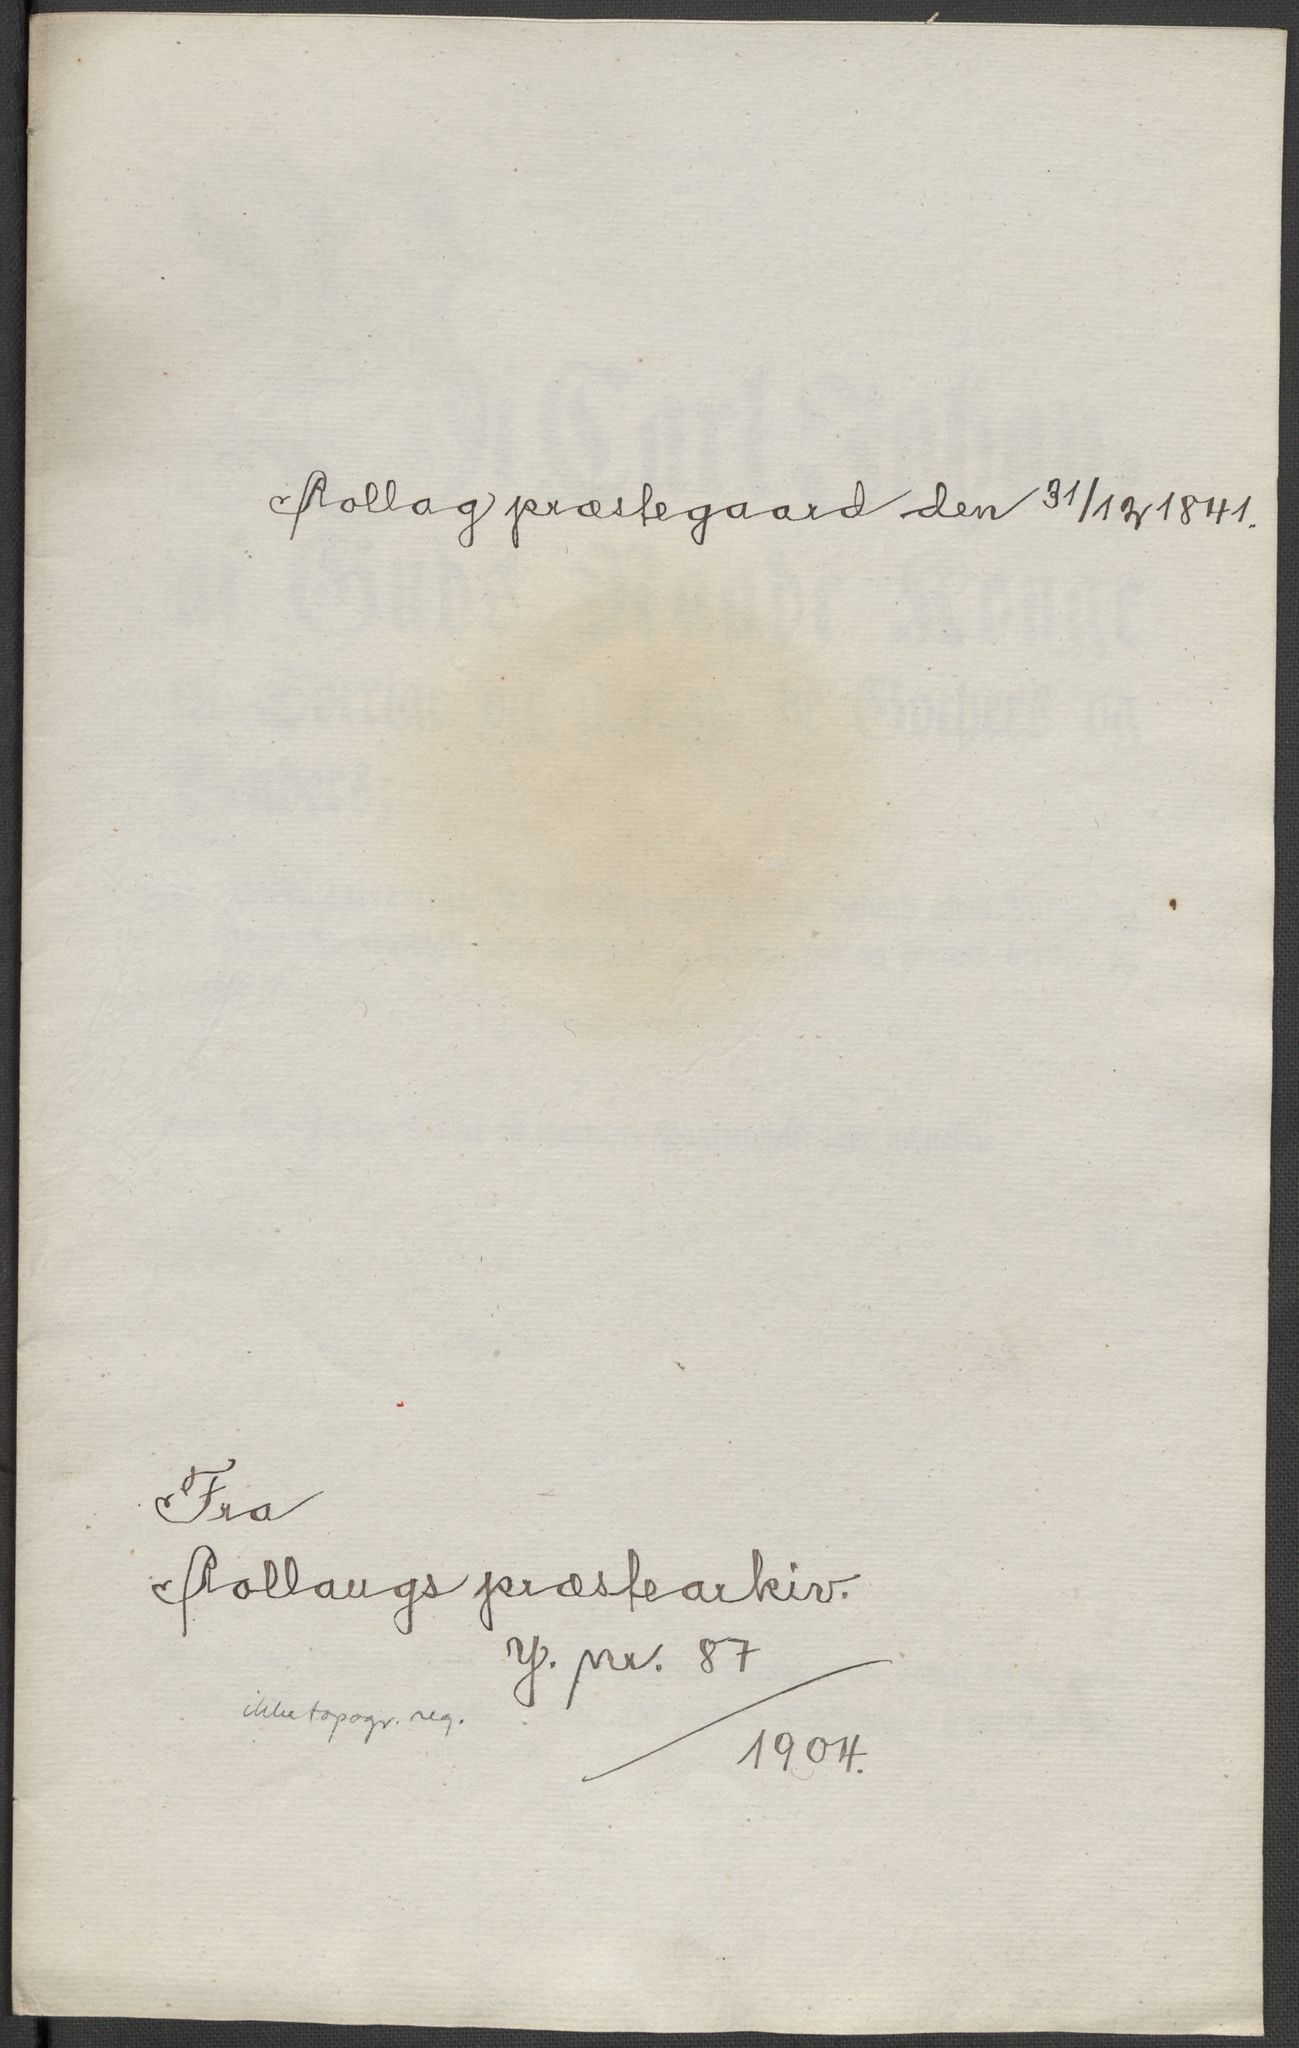 Rollag præstegaard den 31/12 1841.
Fra
Rollaugs præstearkiv.
J. nr. 87
1904.
ikke topogr. reg.